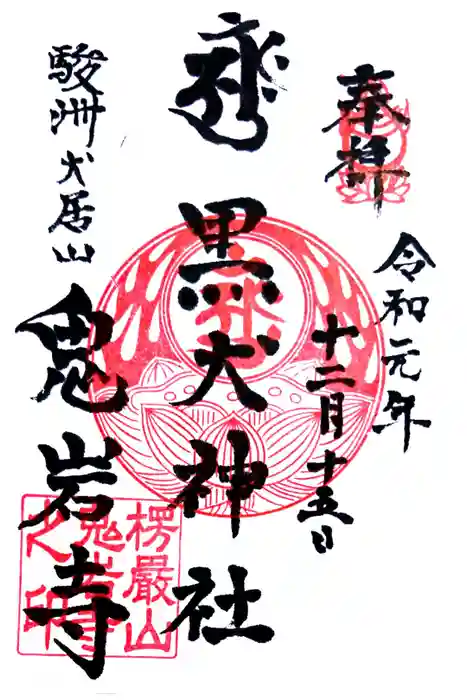 奉拝
令和元年
十二月十五日
黒犬神社
駿洲犬居山
鬼岩寺
楞厳山
鬼岩寺
之印